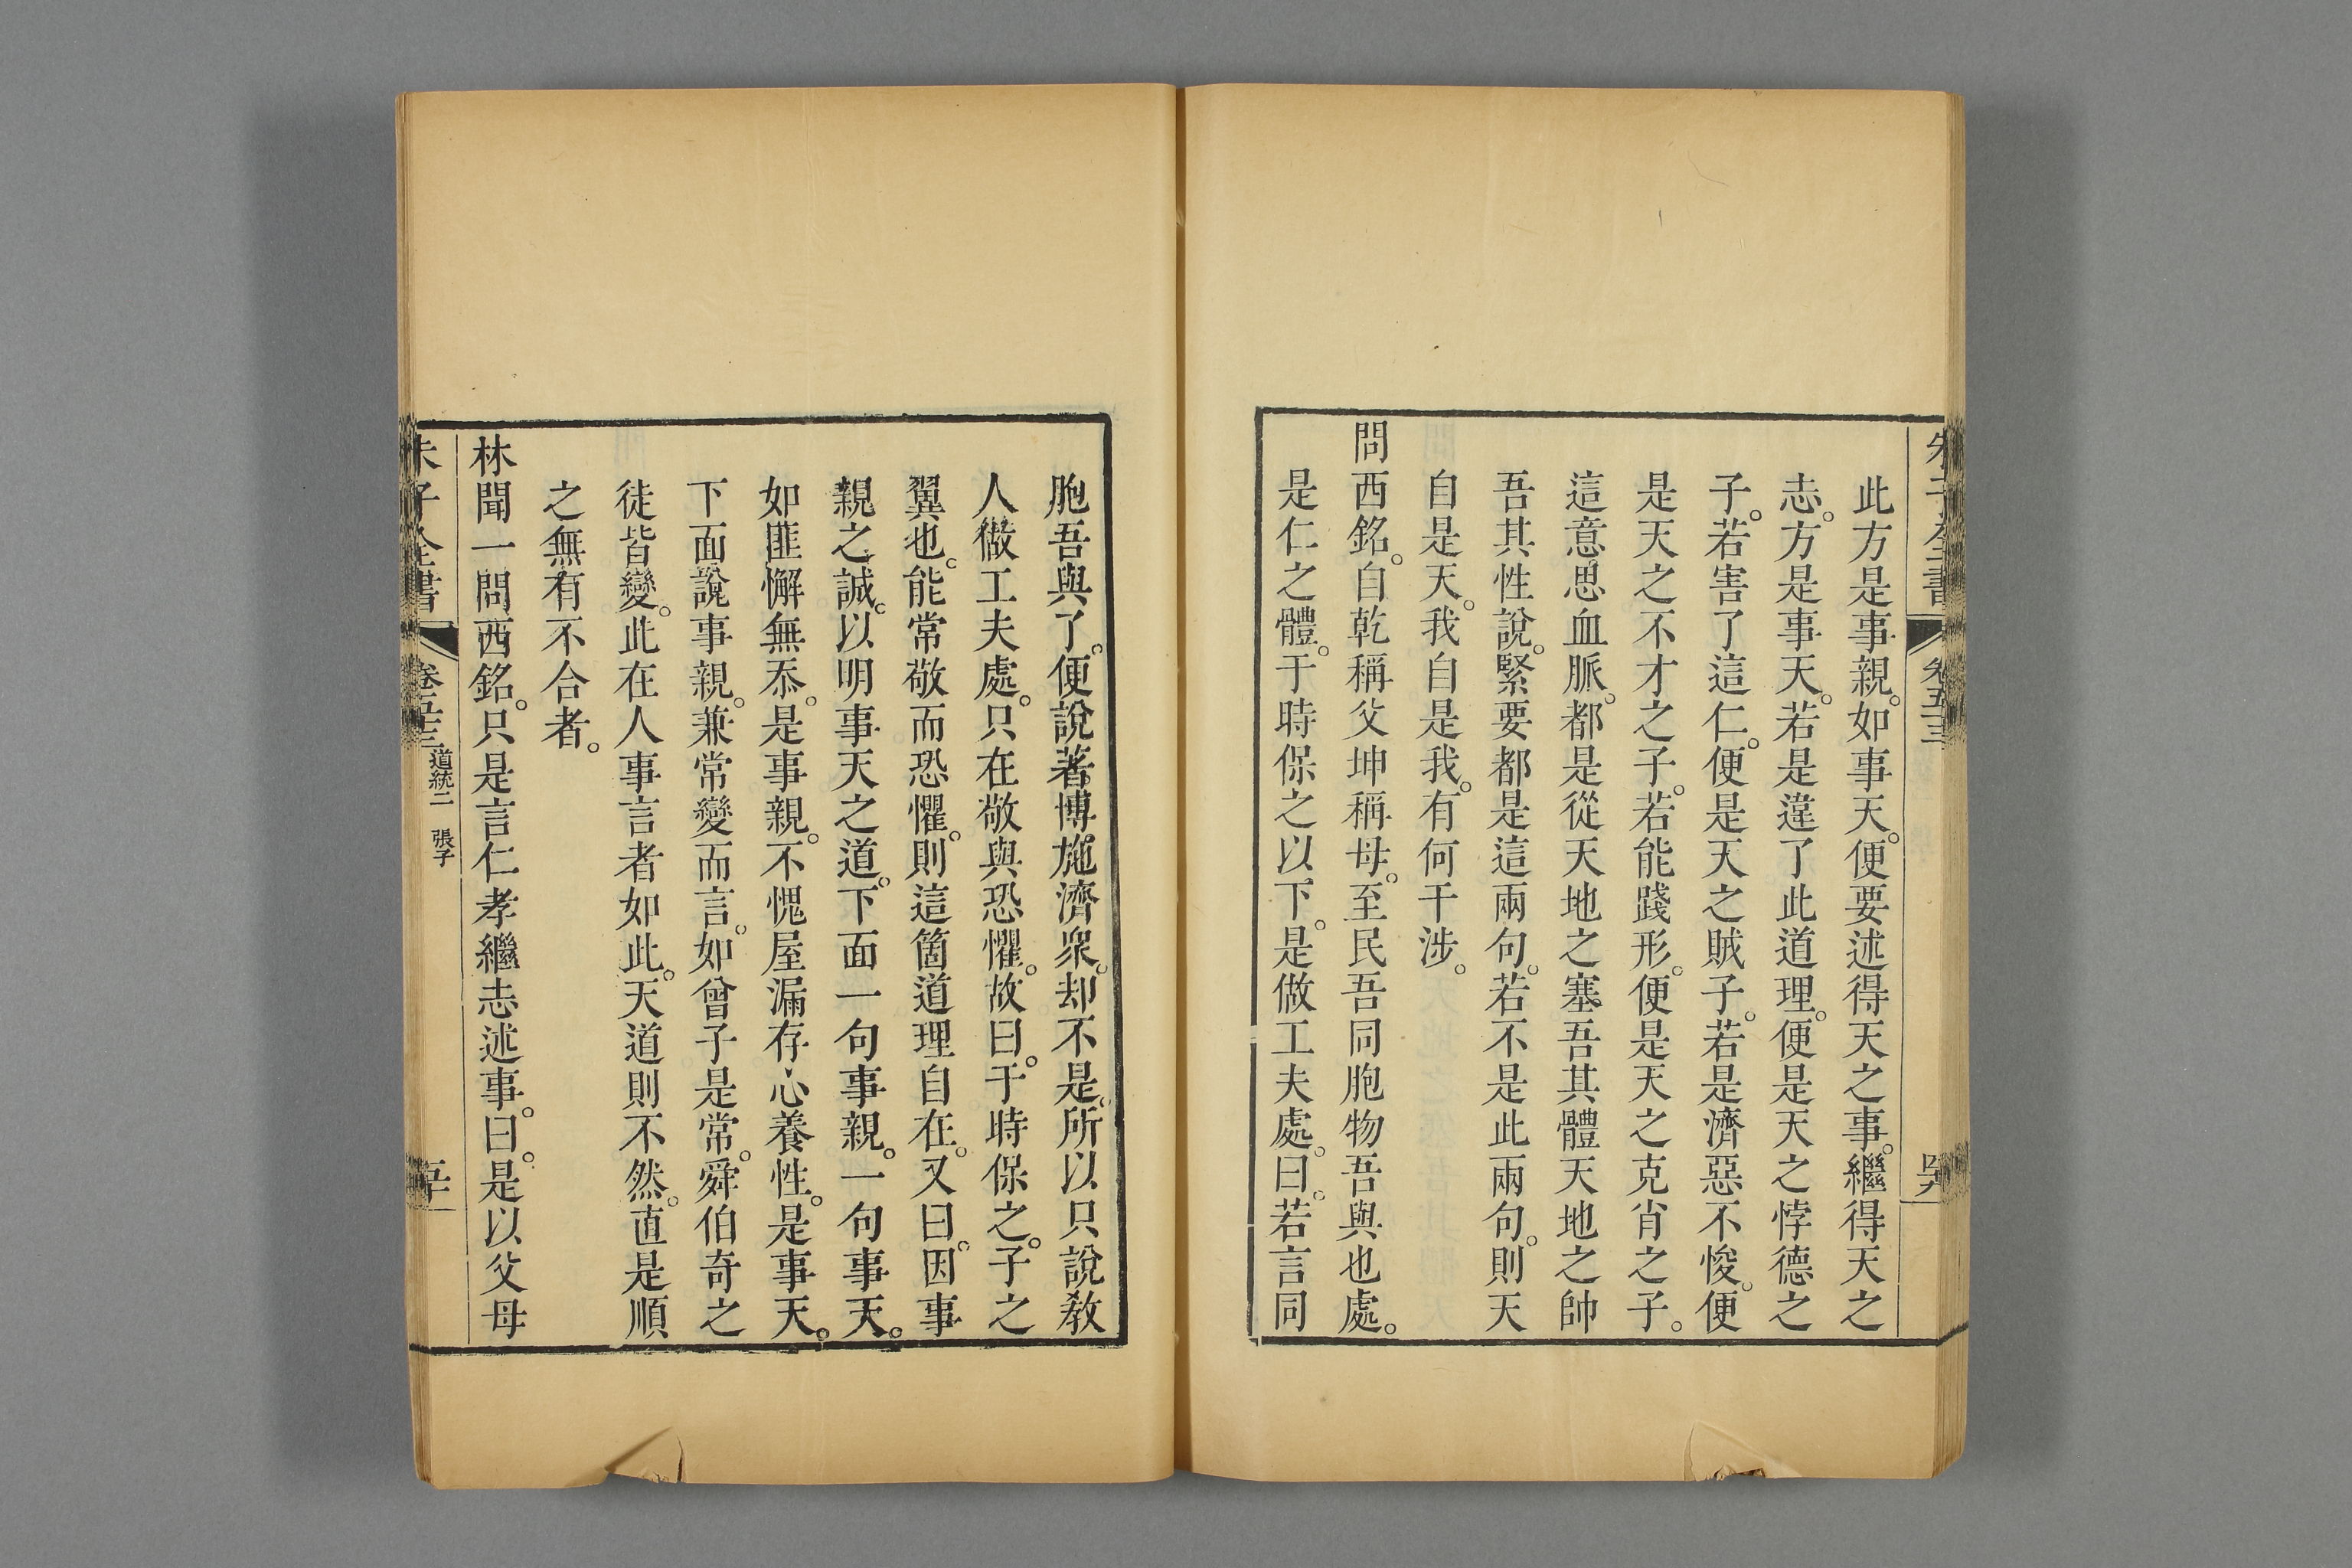 朱子全書 卷五十三
此方是事親。如事天。便要述得天之事。繼得天之
志。方是事天。若是違了此道理。便是天之悖德之
子。若害了這仁。便是天之賊子。若是濟惡不悛。便
是天之不才之子。若能踐形。便是天之克肖之子。
這意思血脈。都是從天地之塞吾其體天地之帥
吾其性說。緊要都是這兩句。若不是此兩句。則天
自是天。我自是我。有何干涉。
問西銘。自乾稱父坤稱母。至民吾同胞物吾與也處。
是仁之體。于時保之以下。是做工夫處。曰。若言同
胞吾與了。便說著博施濟衆。却不是。所以只說敎
人做工夫處。只在敬與恐懼。故曰。于時保之。子之
翼也。能常敬而恐懼。則這箇道理自在。又曰。因事
親之誠。以明事天之道。下面一句事親。一句事天。
如匪懈無忝。是事親。不愧屋漏存心養性。是事天。
下面說事親。兼常變而言。如曾子是常。舜伯奇之
徒皆變。此在人事言者如此。天道則不然。直是順
之無有不合者。
林聞一問西銘。只是言仁孝繼志述事。曰。是以父母
朱子全書 卷五十三 道統二 張子